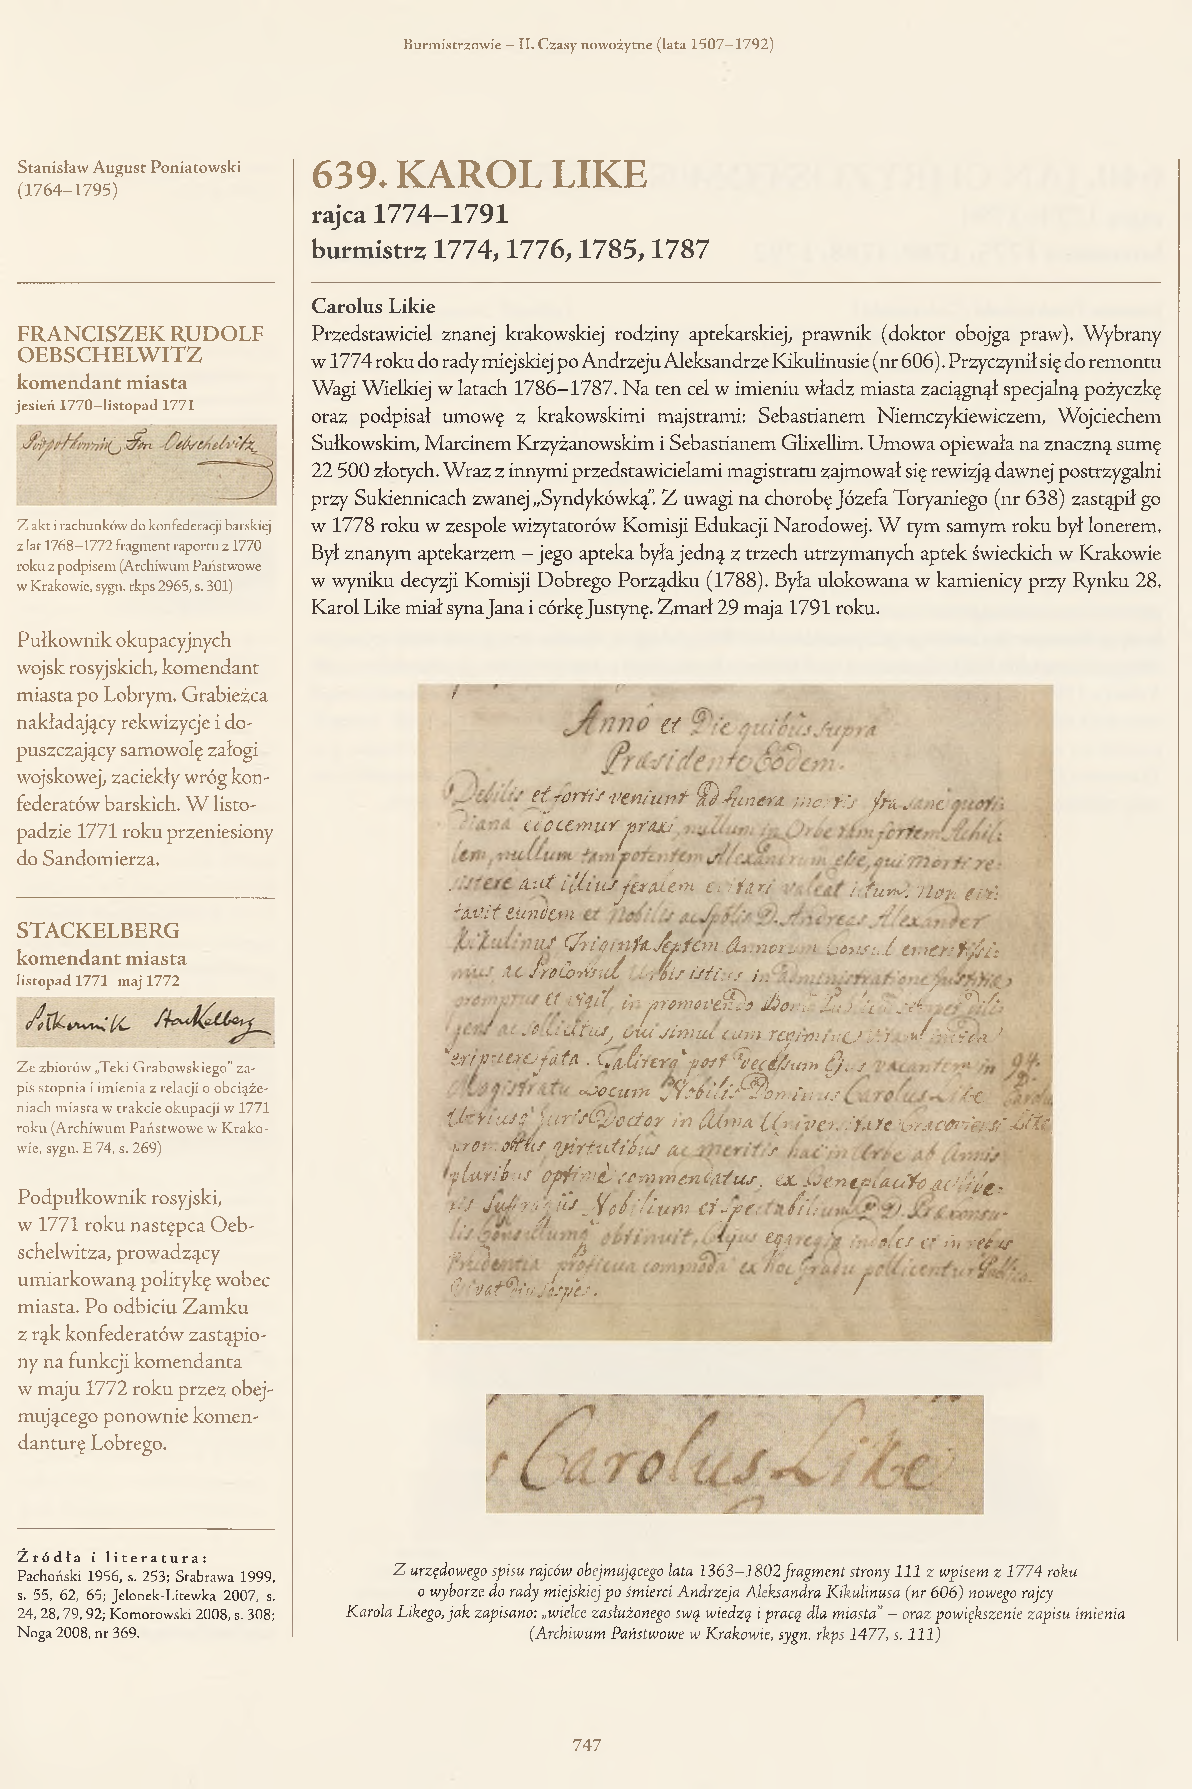 Burmistrzowie – II. Czasy nowożytne (lata 1507–1792)
Stanisław August Poniatowski
(1764–1795)
FRANCISZEK RUDOLF
OEBSCHELWITZ
komendant miasta
jesień 1770–listopad 1771
Podpołkownik Fon Oebschelvitz
Z akt i rachunków do konfederacji barskiej
z lat 1768–1772 fragment raportu z 1770
roku z podpisem (Archiwum Państwowe
w Krakowie, sygn. rkps 2965, s. 301)
Pułkownik okupacyjnych
wojsk rosyjskich, komendant
miasta po Lobrym. Grabieżca
nakładający rekwizycje i do-
puszczający samowolę załogi
wojskowej, zaciekły wróg kon-
federatów barskich. W listo-
padzie 1771 roku przeniesiony
do Sandomierza.
STACKELBERG
komendant miasta
listopad 1771 maj 1772
Połkownik Stackelberg
Ze zbiorów „Teki Grabowskiego” za-
pis stopnia i imienia z relacji o obciąże-
niach miasta w trakcie okupacji w 1771
roku (Archiwum Państwowe w Krako-
wie, sygn. E 74, s. 269)
Podpułkownik rosyjski,
w 1771 roku następca Oeb-
schelwitza, prowadzący
umiarkowaną politykę wobec
miasta. Po odbiciu Zamku
z rąk konfederatów zastąpio-
ny na funkcji komendanta
w maju 1772 roku przez obej-
mującego ponownie komen-
danturę Lobrego.
Źródła i literatura:
Pachoński 1956, s. 253; Stabrawa 1999,
s. 55, 62, 65; Jelonek-Litewka 2007, s.
24, 28, 79, 92; Komorowski 2008, s. 308;
Noga 2008, nr 369.
639. KAROL LIKE
rajca 1774–1791
burmistrz 1774, 1776, 1785, 1787
Carolus Likie
Przedstawiciel znanej krakowskiej rodziny aptekarskiej, prawnik (doktor obojga praw). Wybrany
w 1774 roku do rady miejskiej po Andrzeju Aleksandrze Kikulinusie (nr 606). Przyczynił się do remontu
Wagi Wielkiej w latach 1786–1787. Na ten cel w imieniu władz miasta zaciągnął specjalną pożyczkę
oraz podpisał umowę z krakowskimi majstrami: Sebastianem Niemczykiewiczem, Wojciechem
Sułkowskim, Marcinem Krzyżanowskim i Sebastianem Glixellim. Umowa opiewała na znaczną sumę
22 500 złotych. Wraz z innymi przedstawicielami magistratu zajmował się rewizją dawnej postrzygalni
przy Sukiennicach zwanej „Syndykówką”. Z uwagi na chorobę Józefa Toryaniego (nr 638) zastąpił go
w 1778 roku w zespole wizytatorów Komisji Edukacji Narodowej. W tym samym roku był lonerem.
Był znanym aptekarzem – jego apteka była jedną z trzech utrzymanych aptek świeckich w Krakowie
w wyniku decyzji Komisji Dobrego Porządku (1788). Była ulokowana w kamienicy przy Rynku 28.
Karol Like miał syna Jana i córkę Justynę. Zmarł 29 maja 1791 roku.
Anno et Die quibus supra
Præsidente Eodem.
Debilis et fortis veniunt ad funera mortis ita sane quoti-
diana edocemur praxi, nullum in Orbe tam fortem Achil-
lem, nullum tam potentem Alexandrum esse, qui morti re-
sistere aut illius feralem evitari valeat ictum: Non evi-
tavit eundem et Nobilis ac Spblis D. Andreas Alexander
Kikulinus Triginta Septem Annorum Consul emeritissi-
mus ac Proconsul Urbis istius in administratione justitiæ
promptus et vigil, in promovendo Bono Publico semper dili-
gens ac sollicitus, cui simul cum regimine vitam invida
eripuere fata. Taliterq post decessum Ejus vacantem in
Magistratu Locum Nobilis Dominus Carolus Like
Utriusq Juris Doctor in Alma Universitate Cracoviensi
promotus virtutibus ac meritis hac in Urbe ab Annis
pluribus optime commendatus, ex Beneplacito ac libe-
ris Suffragiis Nobilium et Spectabilium D.D. Proconsu-
lis Consulumq obtinuit, Cujus egregia indoles et in rebus
Prudentia proficua commoda ex hoc Gradu pollicentur Publico.
Vivat Diu Sospes.
Carolus
Like
Carolus Like
Z urzędowego spisu rajców obejmującego lata 1363–1802 fragment strony 111 z wpisem z 1774 roku
o wyborze do rady miejskiej po śmierci Andrzeja Aleksandra Kikulinusa (nr 606) nowego rajcy
Karola Likego, jak zapisano: „wielce zasłużonego swą wiedzą i pracą dla miasta” – oraz powiększenie zapisu imienia
(Archiwum Państwowe w Krakowie, sygn. rkps 1477, s. 111)
747